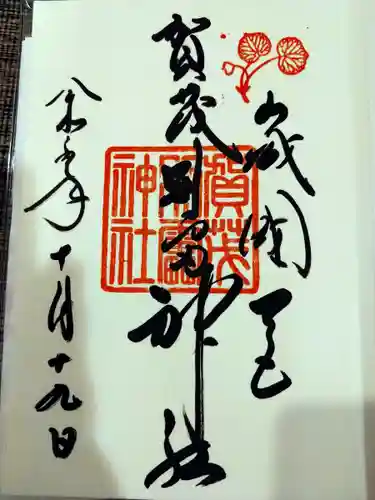 山城國一宮
賀茂別雷神社
賀茂
別雷
神社
令和 年十月十九日